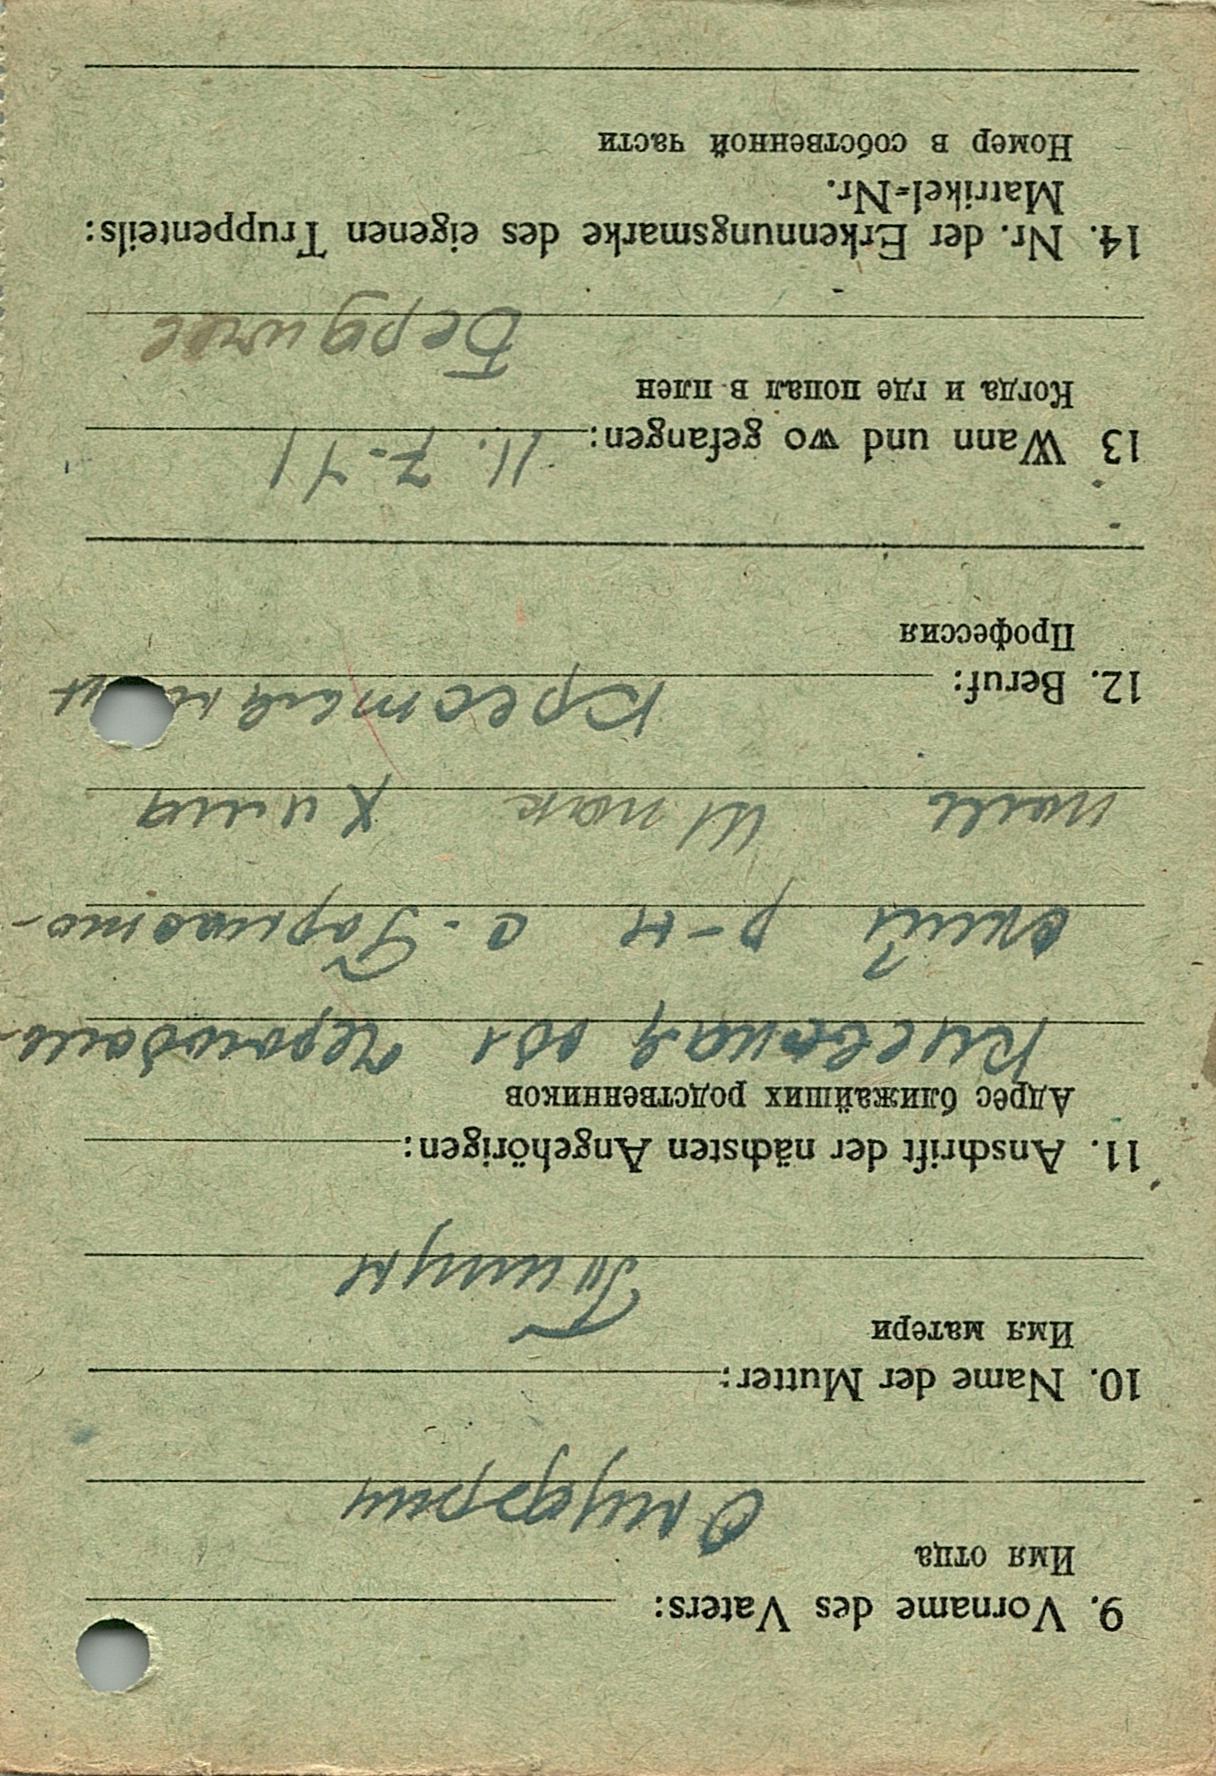 9. Vorname des Vaters:
Имя отца
Онуфрий
10. Name der Mutter:
Имя матери
11. Anschrift der nächsten Angehörigen:
Адрес ближайших родственников
Киевская обл
ский р-н с.
Шпак
12. Beruf:
Профессия
13 Wann und wo gefangen: 11. 7. 41
Когда и где попал в плен
14. Nr. der Erkennungsmarke des eigenen Truppenteils:
Matrikel-Nr.
Номер в собственной части